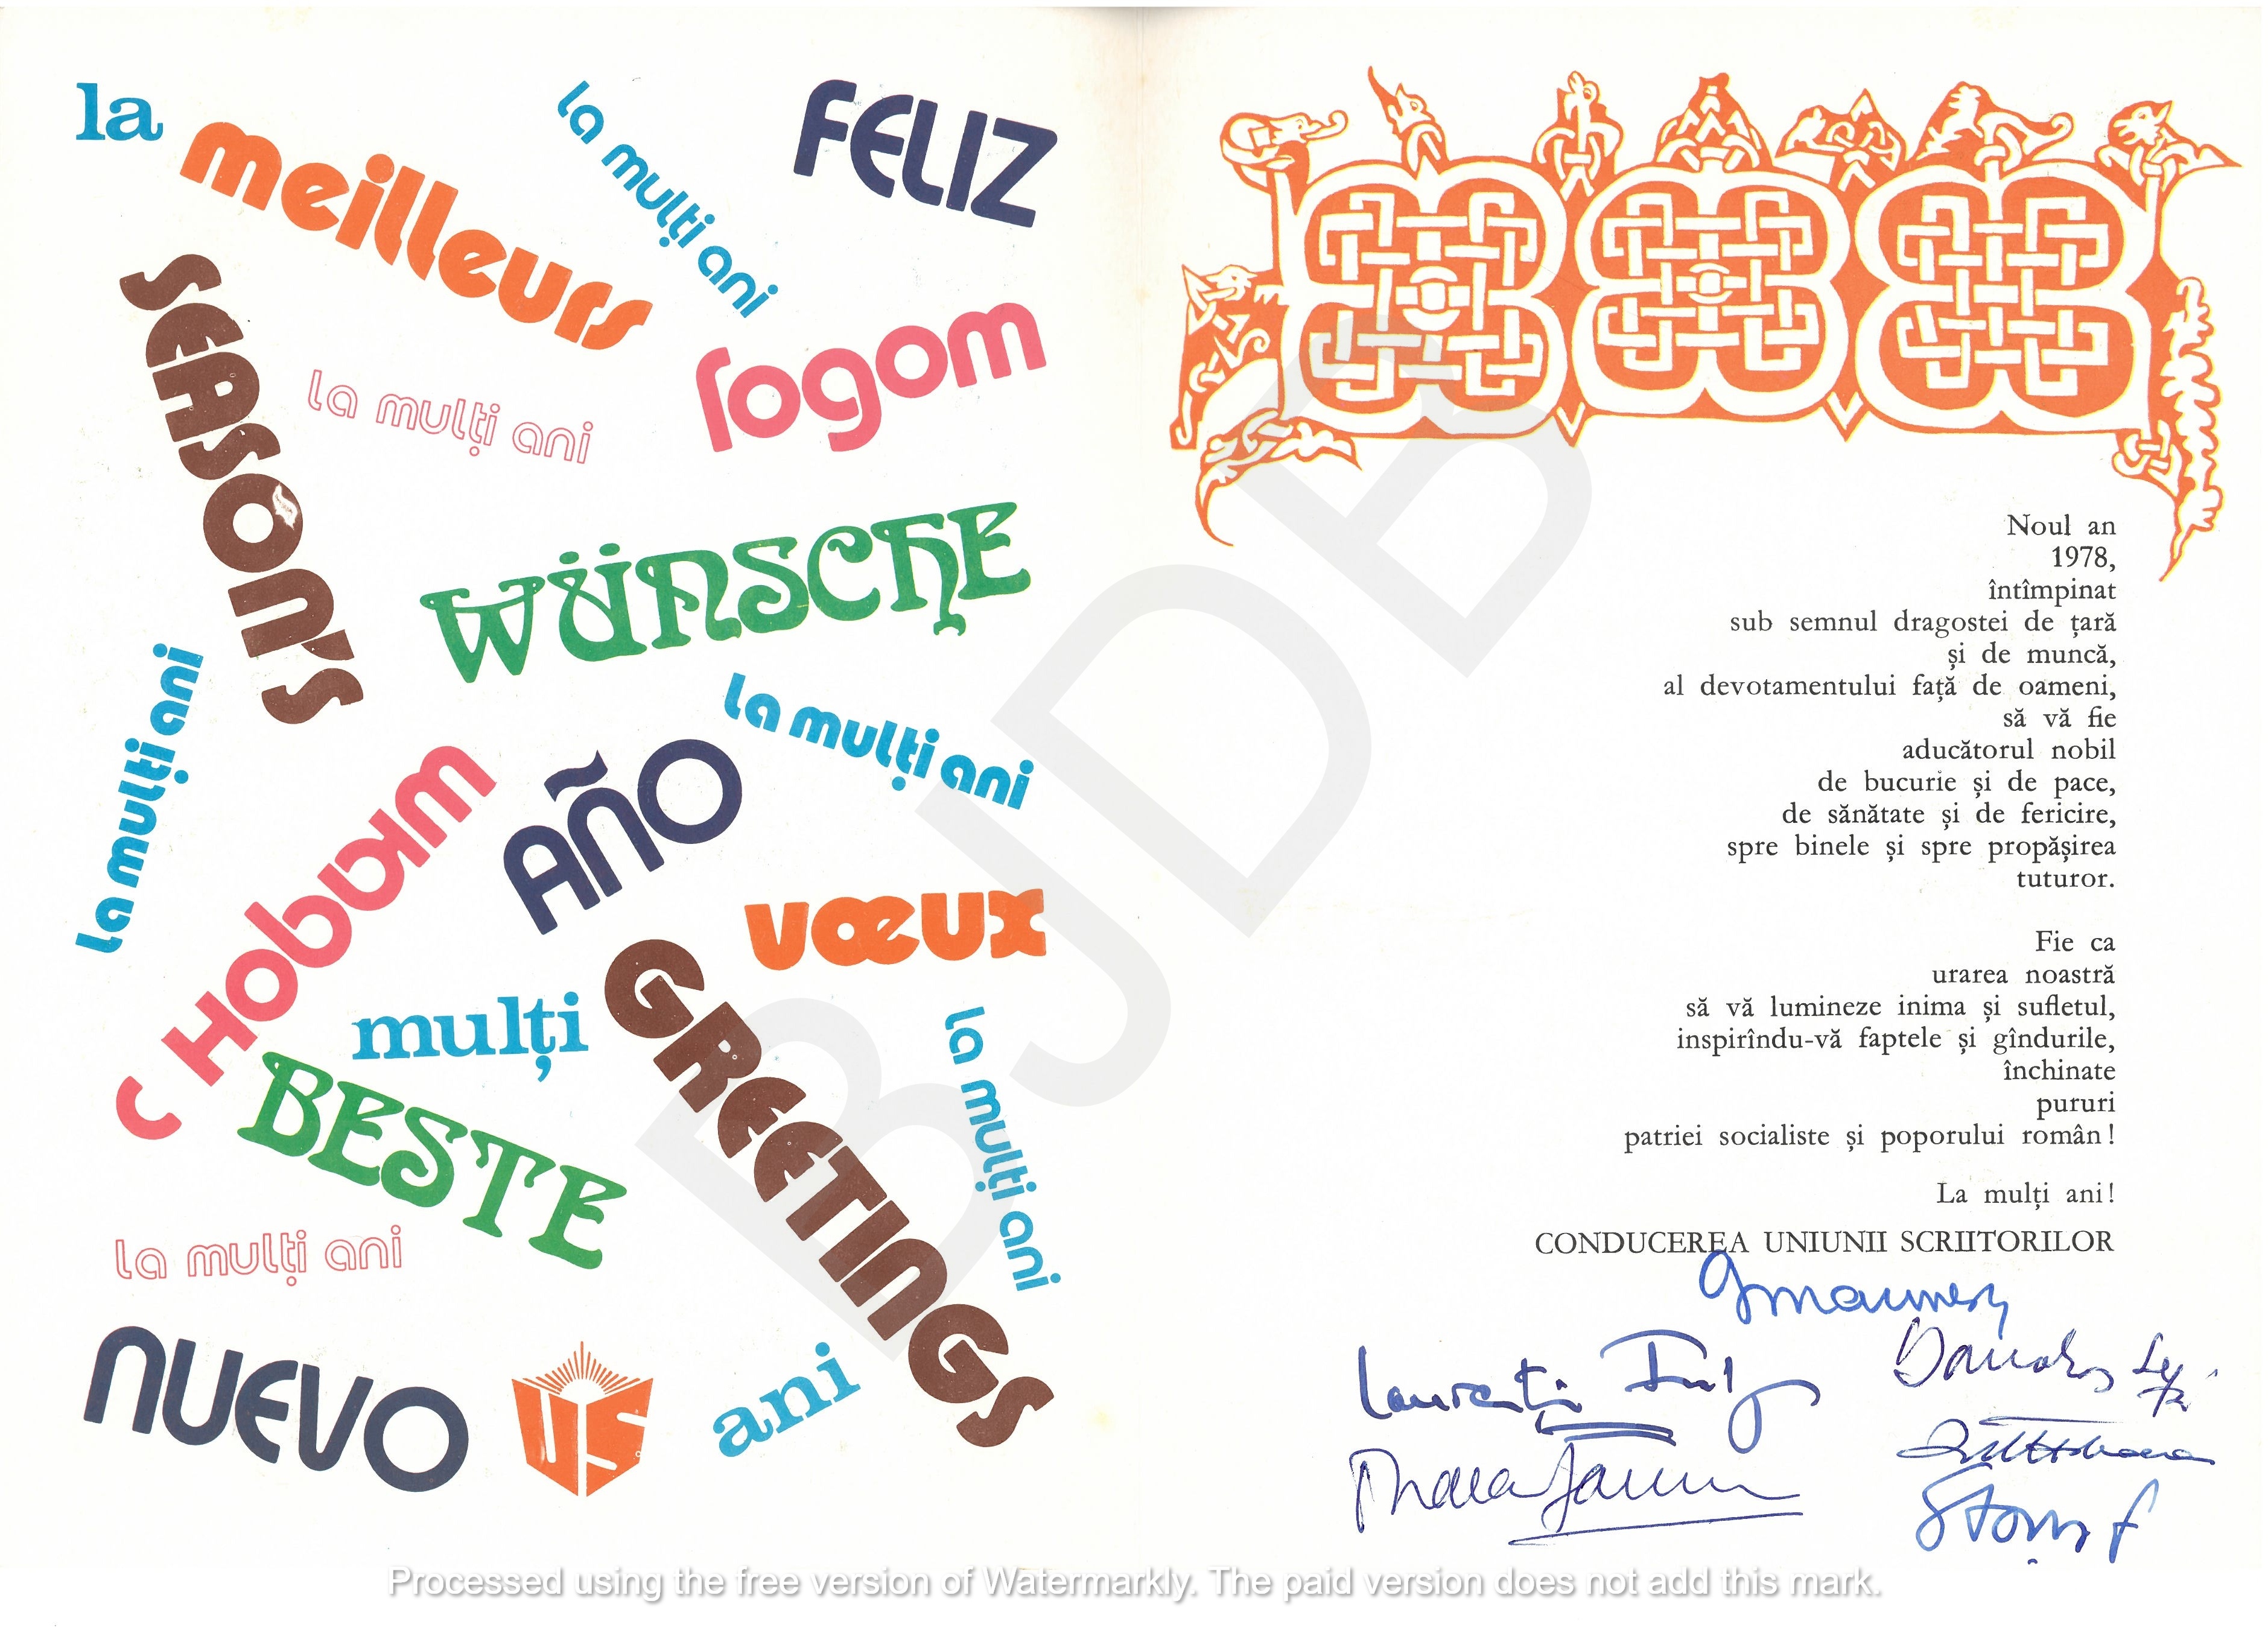 la
meilleurs
la mulți ani
FELIZ
SEASON'S
la mulți ani
годом
WÜNSCHE
la mulți ani
la mulți ani
С НОВЫМ
AÑO
vœux
mulți
GREETINGS
BESTE
la mulți ani
la mulți ani
NUEVO
US
ani
Noul an
1978,
întîmpinat
sub semnul dragostei de țară
și de muncă,
al devotamentului față de oameni,
să vă fie
aducătorul nobil
de bucurie și de pace,
de sănătate și de fericire,
spre binele și spre propășirea
tuturor.
Fie ca
urarea noastră
să vă lumineze inima și sufletul,
inspirîndu-vă faptele și gîndurile,
închinate
pururi
patriei socialiste și poporului român!
La mulți ani!
CONDUCEREA UNIUNII SCRIITORILOR
Laurențiu
BJDB
Processed using the free version of Watermarkly. The paid version does not add this mark.